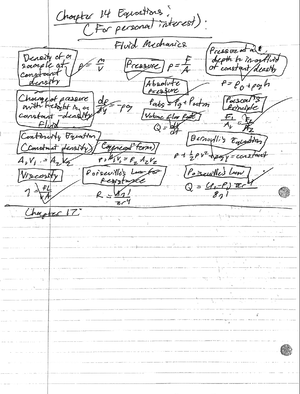 Chapter 14 Equations:
(For personal interest):
Fluid Mechanics
Density of a sample at constant density ρ = m/V
Pressure p = F/A
Pressure at a depth in a fluid of constant density
p = p₀ + ρgh
Absolute pressure
Pabs = Pg + Patm
Change of pressure with height in a constant-density fluid
dp/dy = -ρg
Volume Flow Rate
Q = dV/dt
Pascal's Principle
F₁/A₁ = F₂/A₂
Continuity Equation (Constant density)
A₁V₁ = A₂V₂
(General Form)
ρ₁A₁V₁ = ρ₂A₂V₂
Bernoulli's Equation
p + ½ρv² + ρgy = constant
Viscosity
η = FL/vA
Poiseuille's Law for Resistance
R = 8ηl/πr⁴
Poiseuille's Law
Q = (P₂ - P₁)πr⁴/8ηl
Chapter 17: